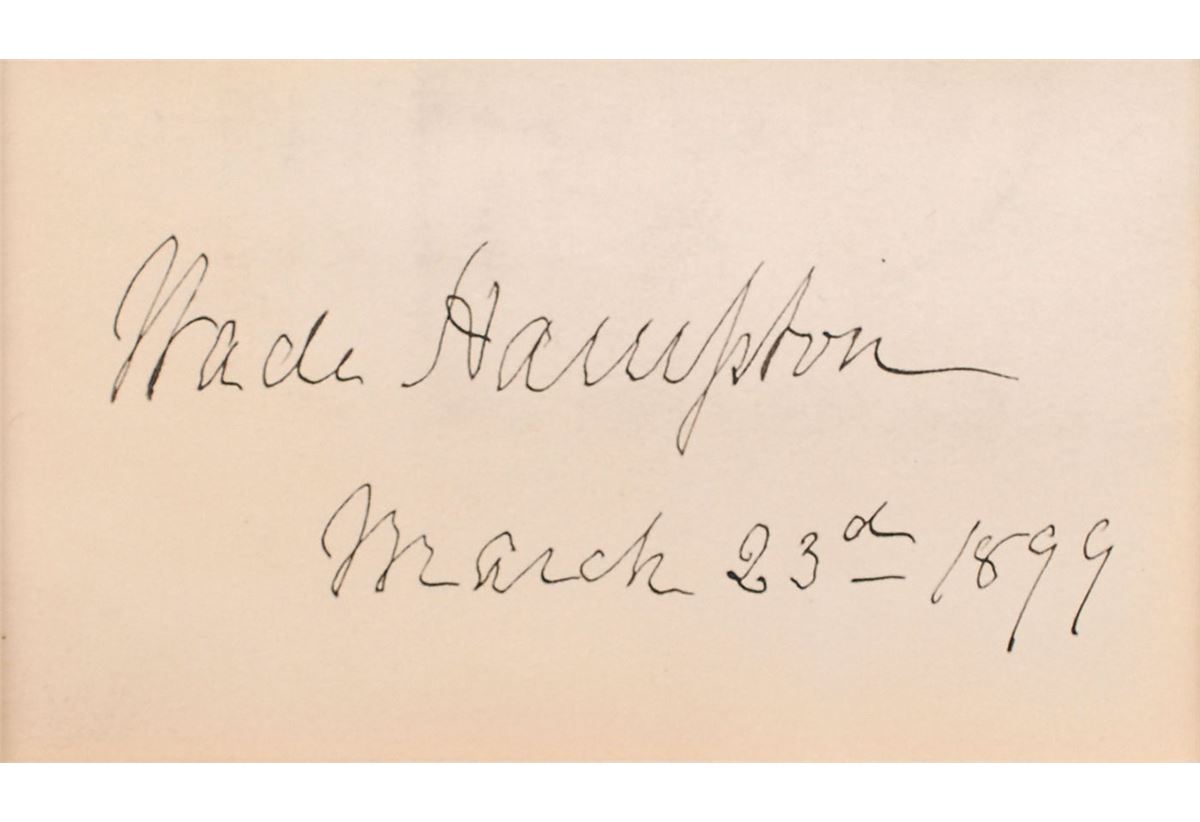 Wade Hampton
March 23d 1899